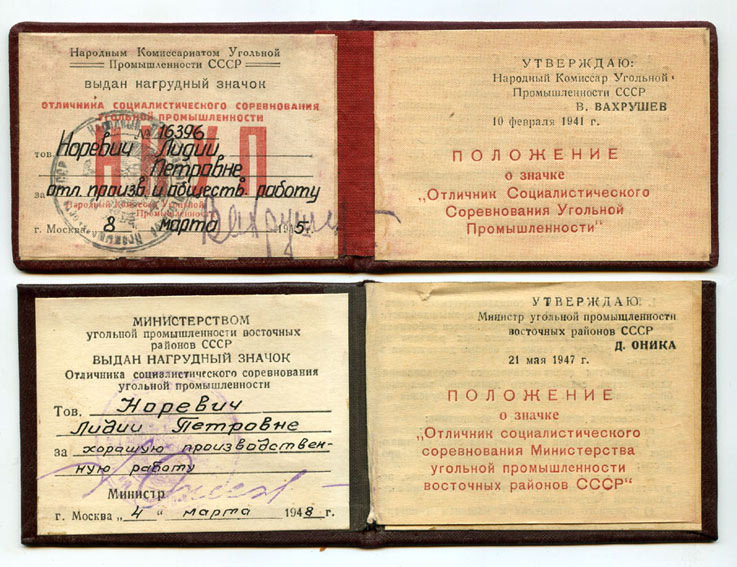 Народным Комиссариатом Угольной
Промышленности СССР
ВЫДАН НАГРУДНЫЙ ЗНАЧОК
ОТЛИЧНИКА СОЦИАЛИСТИЧЕСКОГО СОРЕВНОВАНИЯ
УГОЛЬНОЙ ПРОМЫШЛЕННОСТИ
НКУП
№ 16396
тов. Норевич Лидии
Петровне
за отл. произв. и обществ. работу
Народный Комиссар Угольной
Промышленности
г. Москва „ 8 " марта 1945 г.
УТВЕРЖДАЮ:
Народный Комиссар Угольной
Промышленности СССР
В. ВАХРУШЕВ
10 февраля 1941 г.
ПОЛОЖЕНИЕ
о значке
„Отличник Социалистического
Соревнования Угольной
Промышленности"
МИНИСТЕРСТВОМ
угольной промышленности восточных
районов СССР
ВЫДАН НАГРУДНЫЙ ЗНАЧОК
Отличника социалистического соревнования
угольной промышленности
Тов. Норевич
Лидии Петровне
за хорошую производствен-
ную работу
Министр
г. Москва „ 4 " марта 1948 г.
УТВЕРЖДАЮ:
Министр угольной промышленности
восточных районов СССР
Д. ОНИКА
21 мая 1947 г.
ПОЛОЖЕНИЕ
о значке
„Отличник социалистического
соревнования Министерства
угольной промышленности
восточных районов СССР"